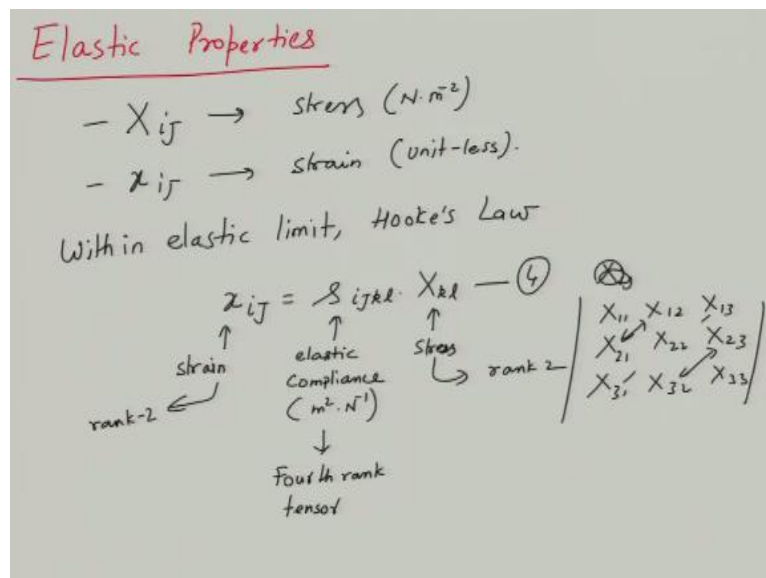 Elastic Properties
- X ij → stress (N.m⁻²)
- x ij → strain (unit-less).
Within elastic limit, Hooke's Law
x ij = s ijkl . X kl — ④
↑ ↑ ↑
strain
rank-2
elastic
compliance
(m².N⁻¹)
↓
Fourth rank
tensor
stress
rank 2
X₁₁ X₁₂ X₁₃
X₂₁ X₂₂ X₂₃
X₃₁ X₃₂ X₃₃